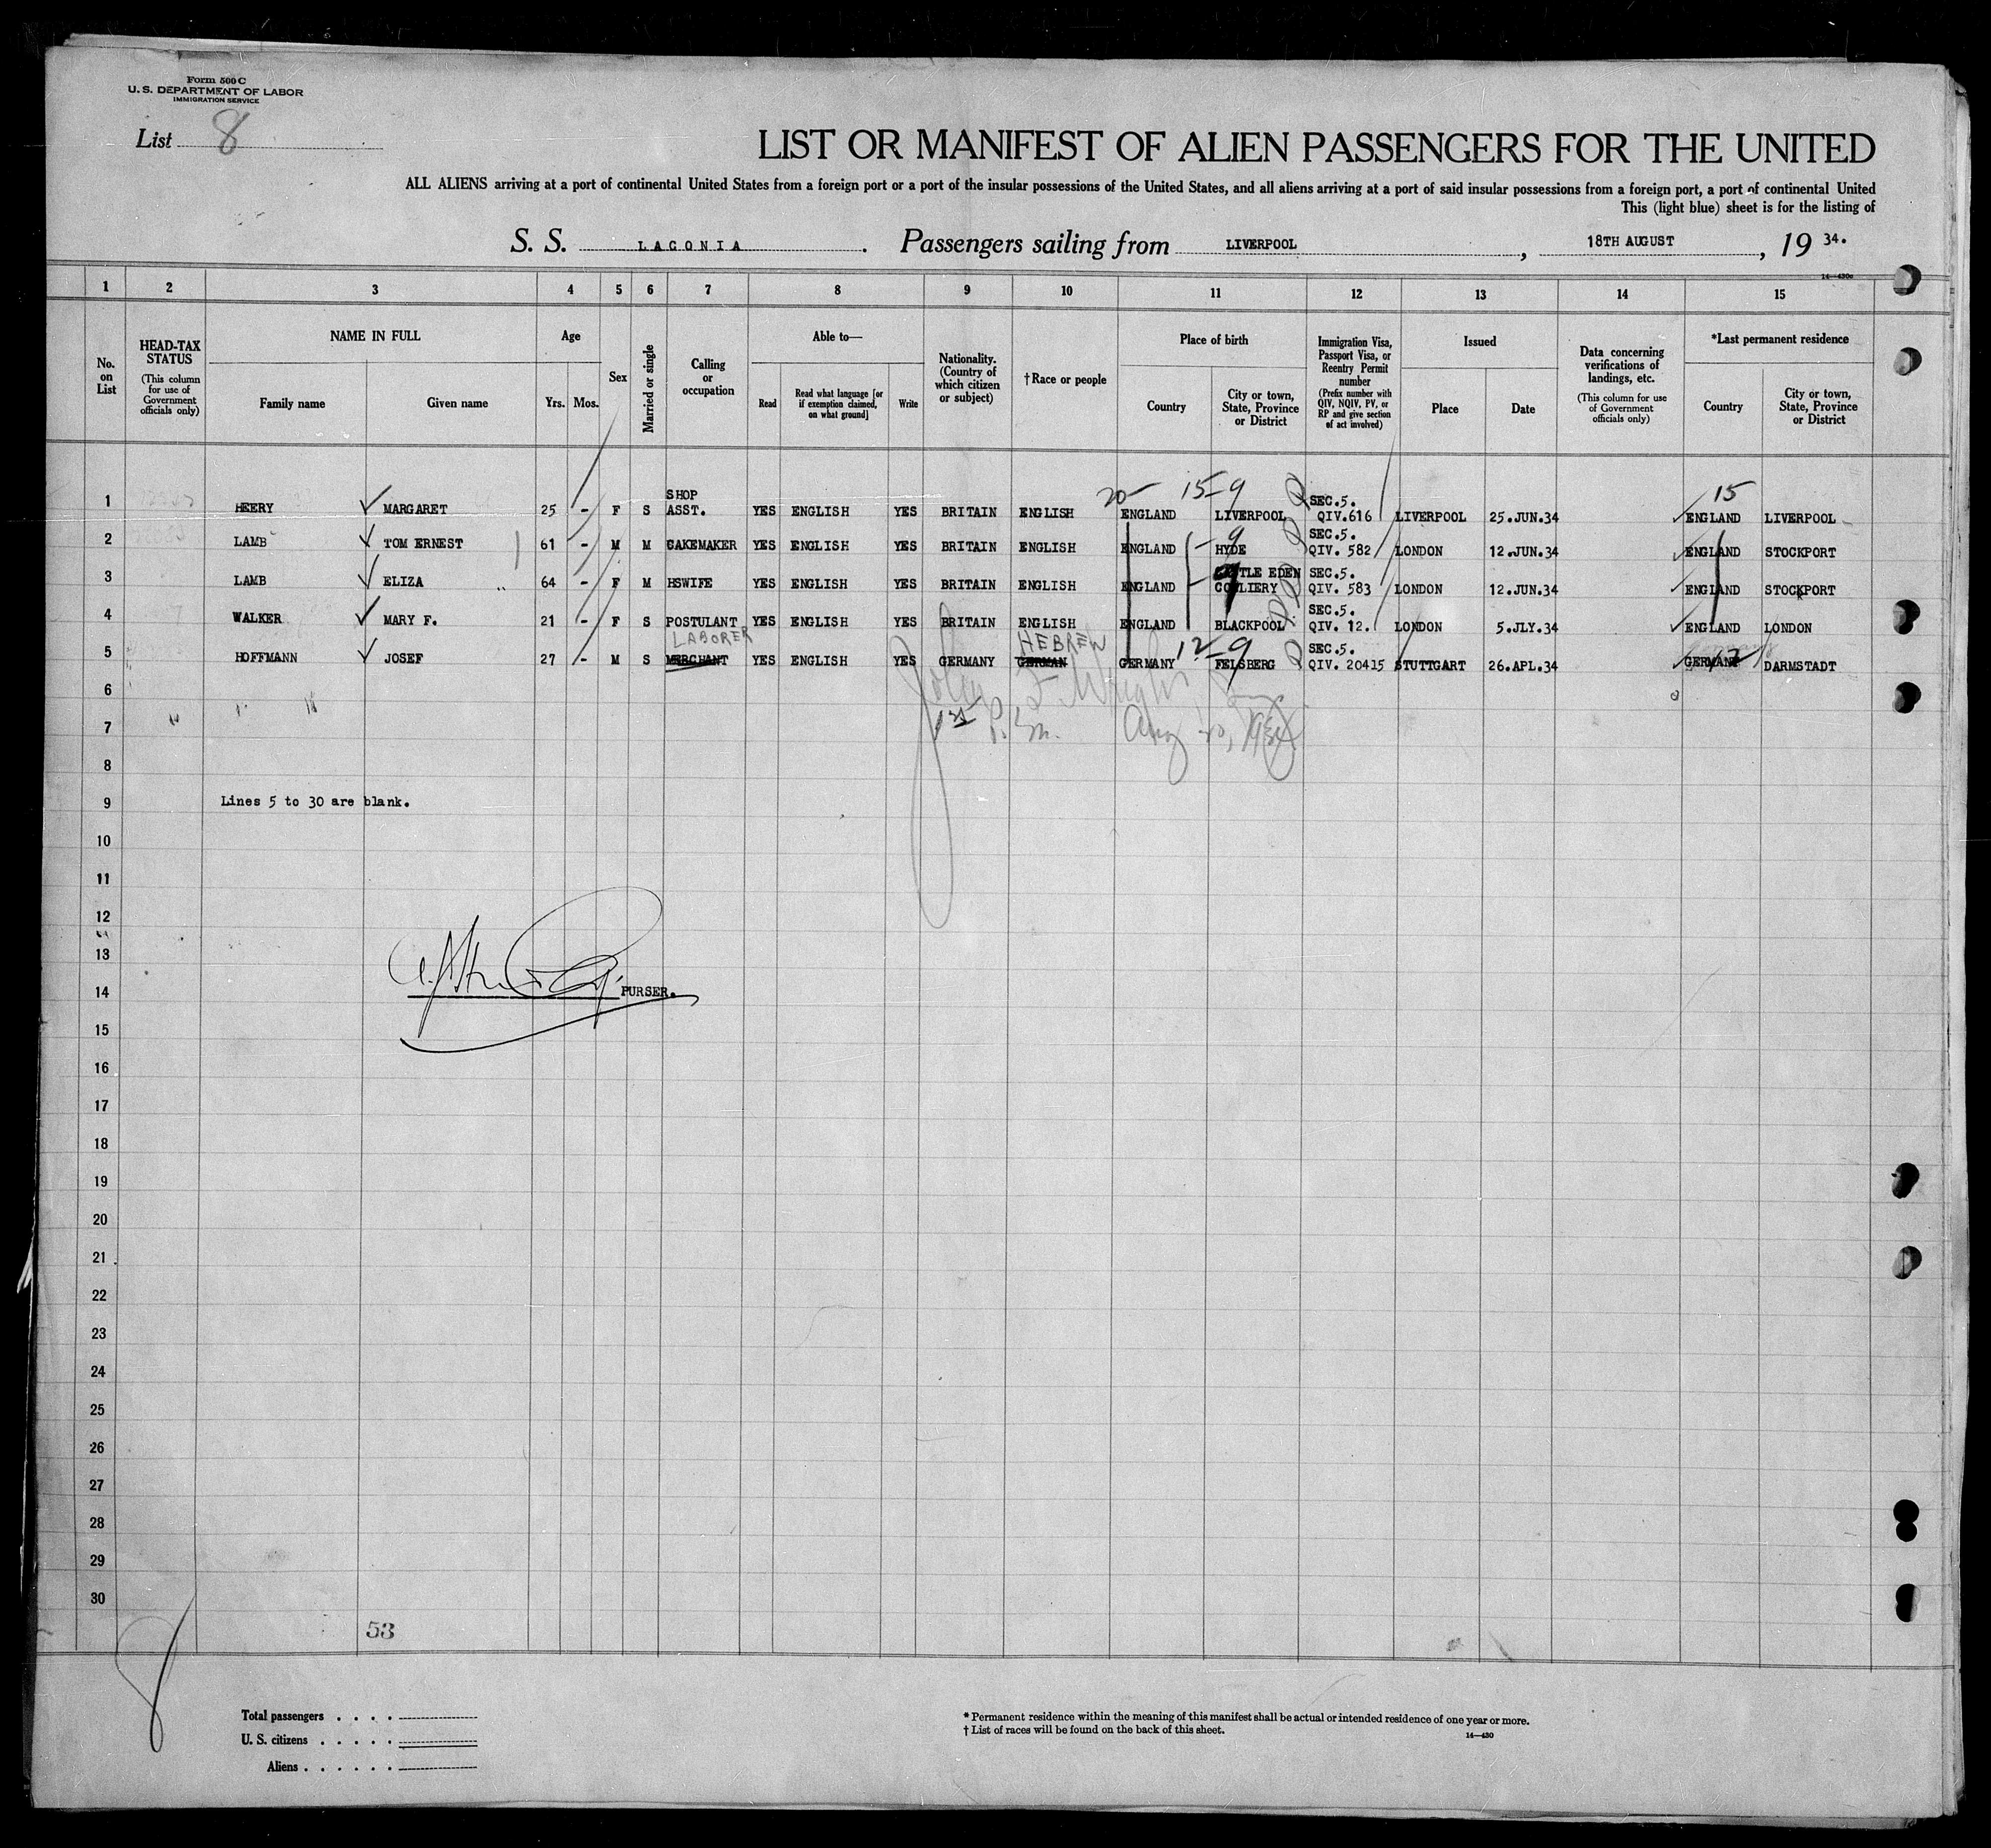 Form 500 C
U. S. DEPARTMENT OF LABOR
IMMIGRATION SERVICE
List 8
LIST OR MANIFEST OF ALIEN PASSENGERS FOR THE UNITED
ALL ALIENS arriving at a port of continental United States from a foreign port or a port of the insular possessions of the United States, and all aliens arriving at a port of said insular possessions from a foreign port, a port of continental United
This (light blue) sheet is for the listing of
S. S. LACONIA. Passengers sailing from LIVERPOOL, 18TH AUGUST, 19 34.
14—430c
1 2 3 4 5 6 7 8 9 10 11 12 13 14 15
No. on List
HEAD-TAX STATUS (This column for use of Government officials only)
NAME IN FULL
Family name Given name
Age
Yrs. Mos.
Sex
Married or single
Calling or occupation
Able to—
Read
Read what language [or if exemption claimed, on what ground]
Write
Nationality. (Country of which citizen or subject)
†Race or people
Place of birth
Country
City or town, State, Province or District
Immigration Visa, Passport Visa, or Reentry Permit number (Prefix number with QIV, NQIV, PV, or RP and give section of act involved)
Issued
Place Date
Data concerning verifications of landings, etc. (This column for use of Government officials only)
*Last permanent residence
Country
City or town, State, Province or District
20 15-9 15
1 HEERY MARGARET 25 - F S SHOP ASST. YES ENGLISH YES BRITAIN ENGLISH ENGLAND LIVERPOOL SEC.5. QIV.616 LIVERPOOL 25.JUN.34 ENGLAND LIVERPOOL
2 LAMB TOM ERNEST 61 - M M CAKEMAKER YES ENGLISH YES BRITAIN ENGLISH ENGLAND HYDE SEC.5. QIV. 582 LONDON 12.JUN.34 ENGLAND STOCKPORT
3 LAMB ELIZA 64 - F M HSWIFE YES ENGLISH YES BRITAIN ENGLISH ENGLAND CASTLE EDEN COLLIERY SEC.5. QIV. 583 LONDON 12.JUN.34 ENGLAND STOCKPORT
4 WALKER MARY F. 21 - F S POSTULANT YES ENGLISH YES BRITAIN ENGLISH ENGLAND BLACKPOOL SEC.5. QIV. 12. LONDON 5.JLY.34 ENGLAND LONDON
LABORER HEBREW 12-9
5 HOFFMANN JOSEF 27 - M S MERCHANT YES ENGLISH YES GERMANY GERMAN GERMANY FELSBERG SEC.5. QIV. 20415 STUTTGART 26.APL.34 GERMANY DARMSTADT
6
7
8
9 Lines 5 to 30 are blank.
10
11
12
13
14 PURSER.
15
16
17
18
19
20
21
22
23
24
25
26
27
28
29
30
53
8
Total passengers
U. S. citizens
Aliens
* Permanent residence within the meaning of this manifest shall be actual or intended residence of one year or more.
† List of races will be found on the back of this sheet.
14—430